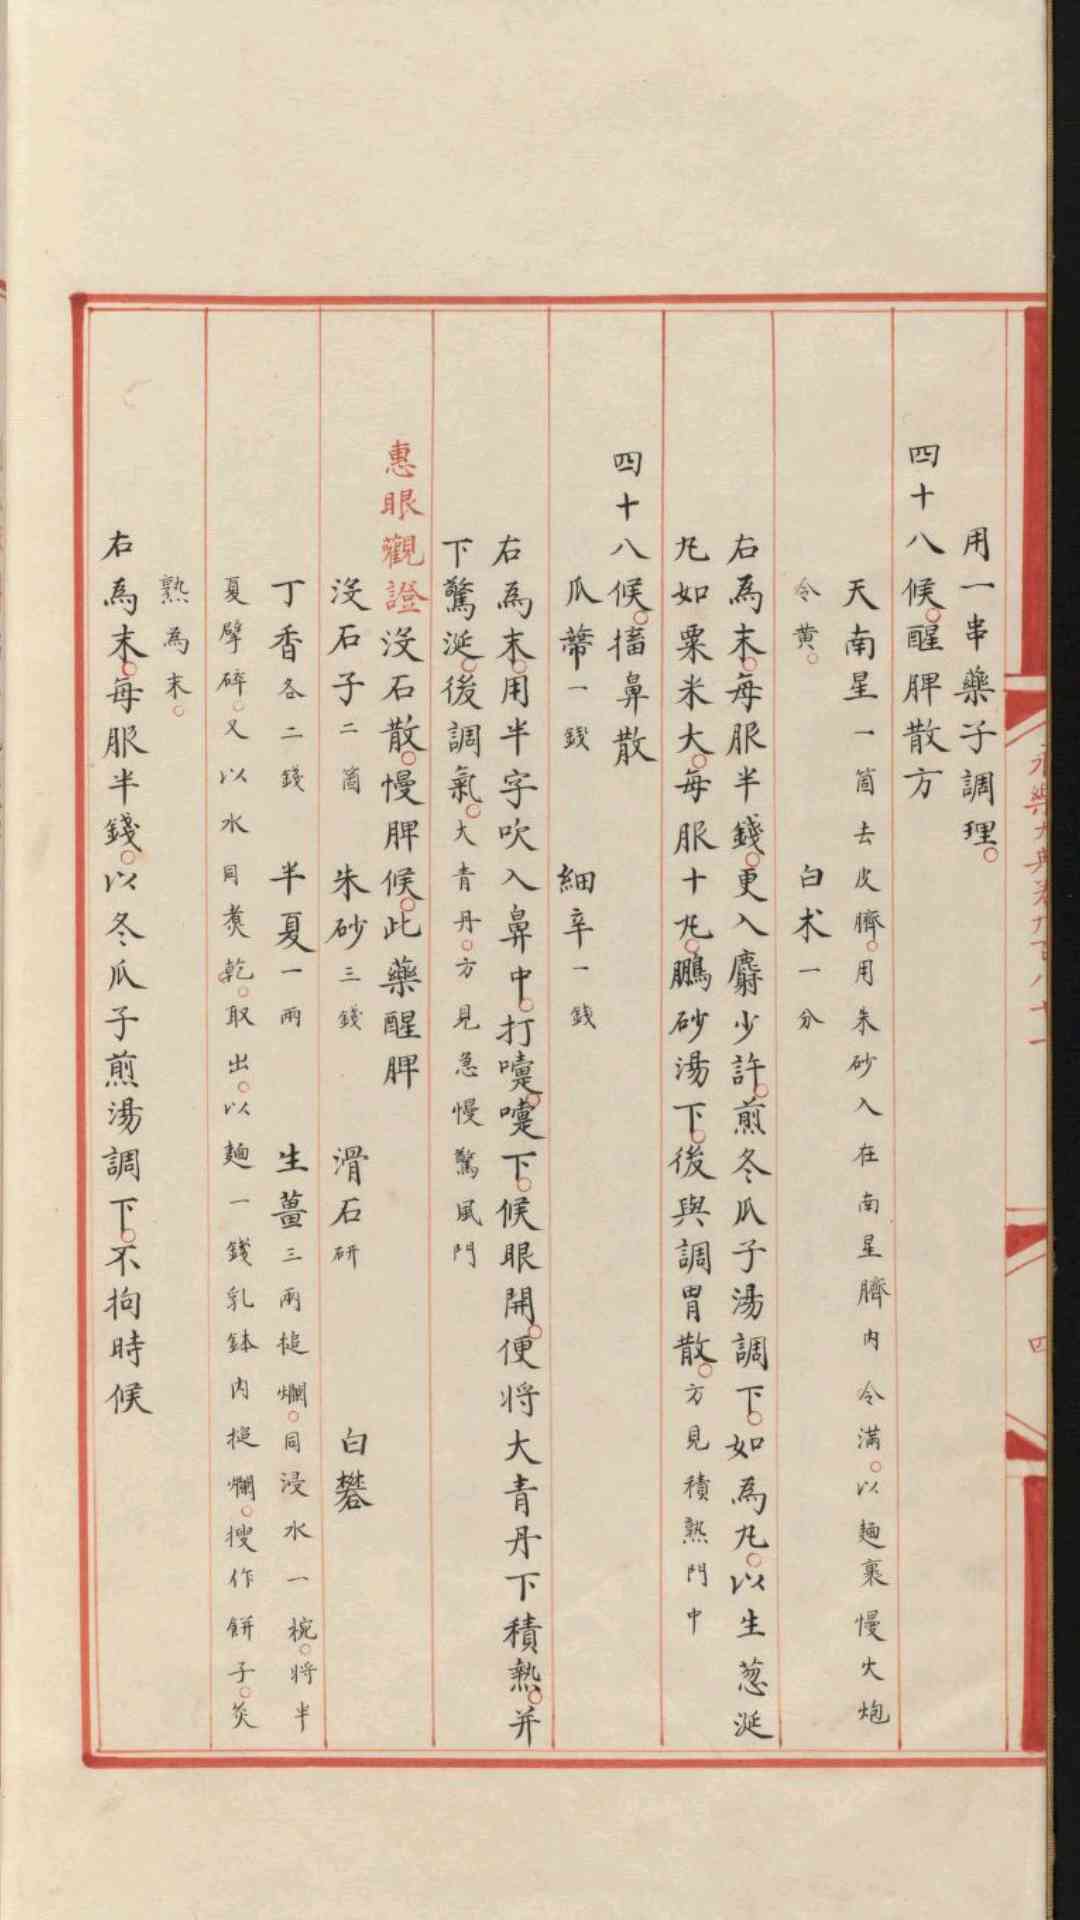 用一串藥子調理。
四十八候。醒脾散方
天南星一箇去皮臍。用朱砂入在南星臍内令滿。以麺裹慢火炮
令黄。 白术一分
右為末。每服半錢。更入麝少許。煎冬瓜子湯調下。如為丸。以生葱涎
丸如粟米大。每服十丸。鵬砂湯下。後與調胃散。方見積熱門中
四十八候。搐鼻散
瓜蔕一錢 細辛一錢
右為末。用半字吹入鼻中。打嚏。嚏下。候眼開。便将大青丹下積熱。并
下驚涎。後調氣。大青丹。方見急慢驚風門
惠眼觀證没石散。慢脾候。此藥醒脾
没石子二箇 朱砂三錢 滑石研 白礬
丁香各二錢 半夏一兩 生薑三兩搥爛。同浸水一椀。将半
夏擘碎。又以水同煑乾。取出。以麺一錢乳鉢内搥爛。搜作餅子。炙
熟為末。
右為末。每服半錢。以冬瓜子煎湯調下。不拘時候
永樂大典卷九百八十一
四